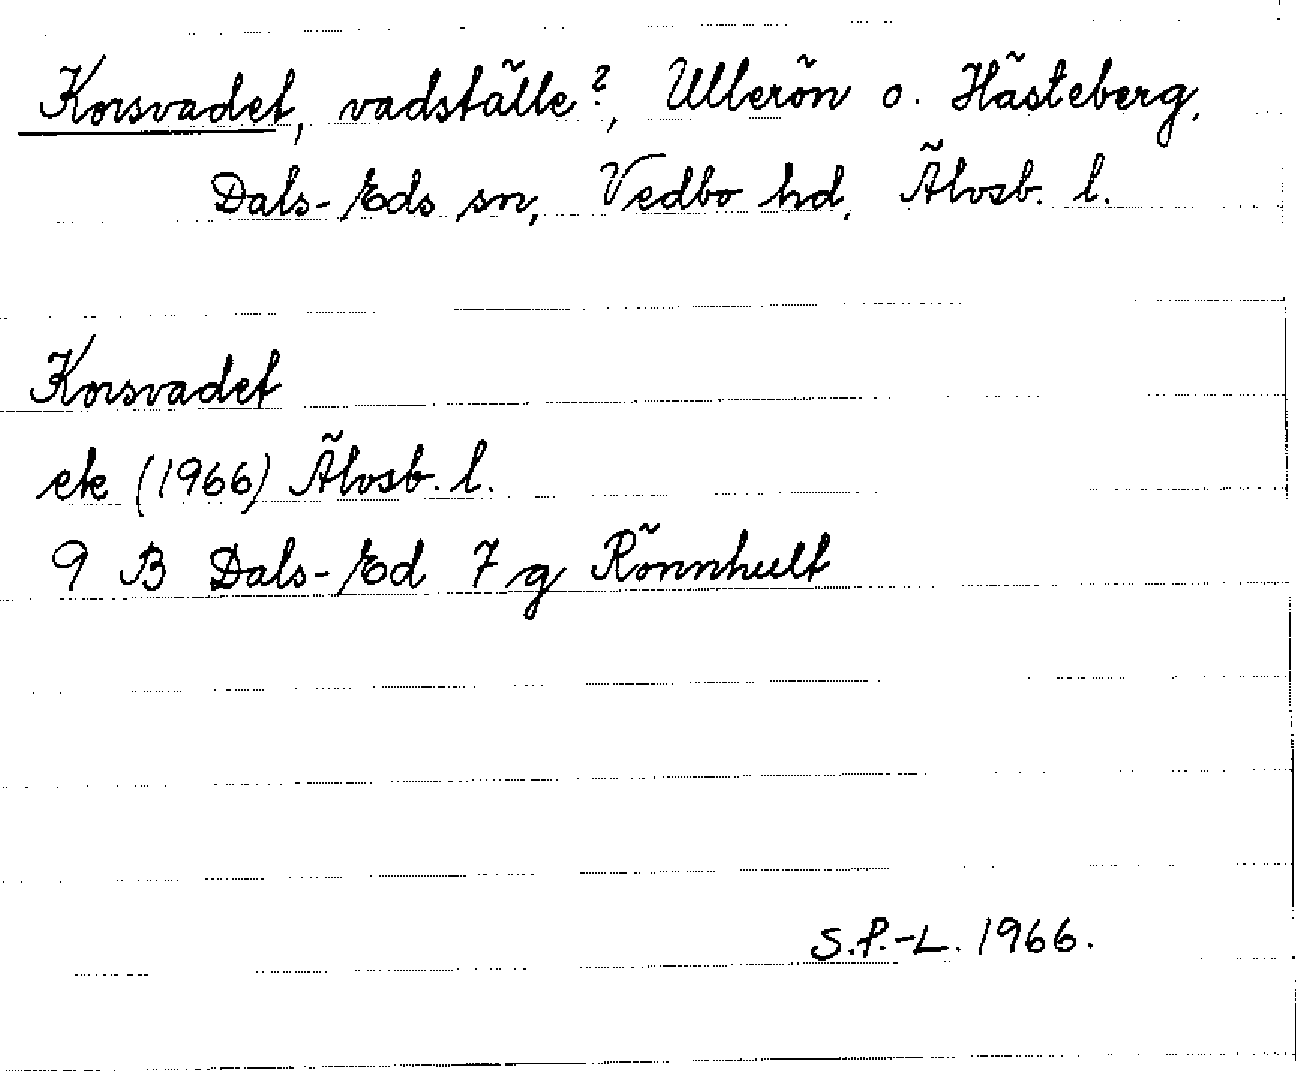 Korsvadet, vadställe?, Ullerön o. Hästeberg,
Dals-Eds sn, Vedbo hd, Älvsb. l.
Korsvadet
ek (1966) Älvsb. l.
9 B Dals-Ed 7 g Rönnhult
S.P.-L. 1966.